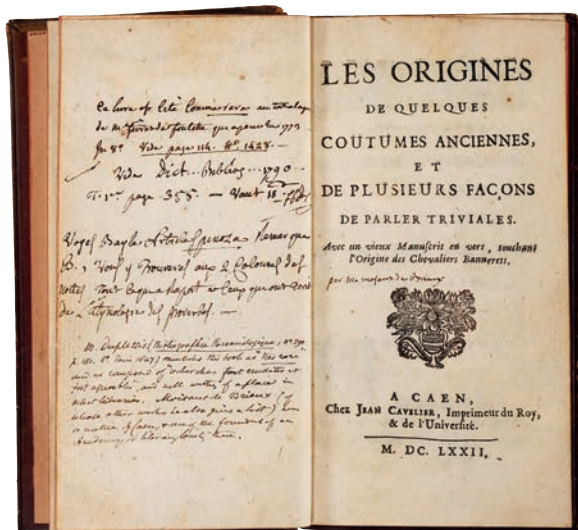 Ce livre est cité Comme rare au catalogue
de Mr
in 8o. Vide page 114. No. 1428. —
Vide Dict. Bibliog. 1790 —
T. 1er page 355. — Vaut 18
Voyes Bayle article Remarque
B. , Vous y Trouveres aux 2 Colonnes des
nottes Tout ce qui a Raport a Ceux qui ont écrit
de L'Etymologie des proverbes. —
M. Duplessis (Bibliographie Parémiologique, No.
p. 151. 8o. Paris 1847) mentions this book as très rare
and as composed of
and well worthy of a place in
Moisant de Brieux (of
whose other works he also gives a list) was
a native of Caen, & was the founder of an
Academy or literary Society there.
LES ORIGINES
DE QUELQUES
COUTUMES ANCIENNES,
ET
DE PLUSIEURS FAÇONS
DE PARLER TRIVIALES.
Avec un vieux Manuscrit en vers, touchant
l'Origine des Chevaliers Bannerets.
par Mr moisant de Brieux
A CAEN,
Chez JEAN CAVELIER, Imprimeur du Roy,
& de l'Université.
M. DC. LXXII.